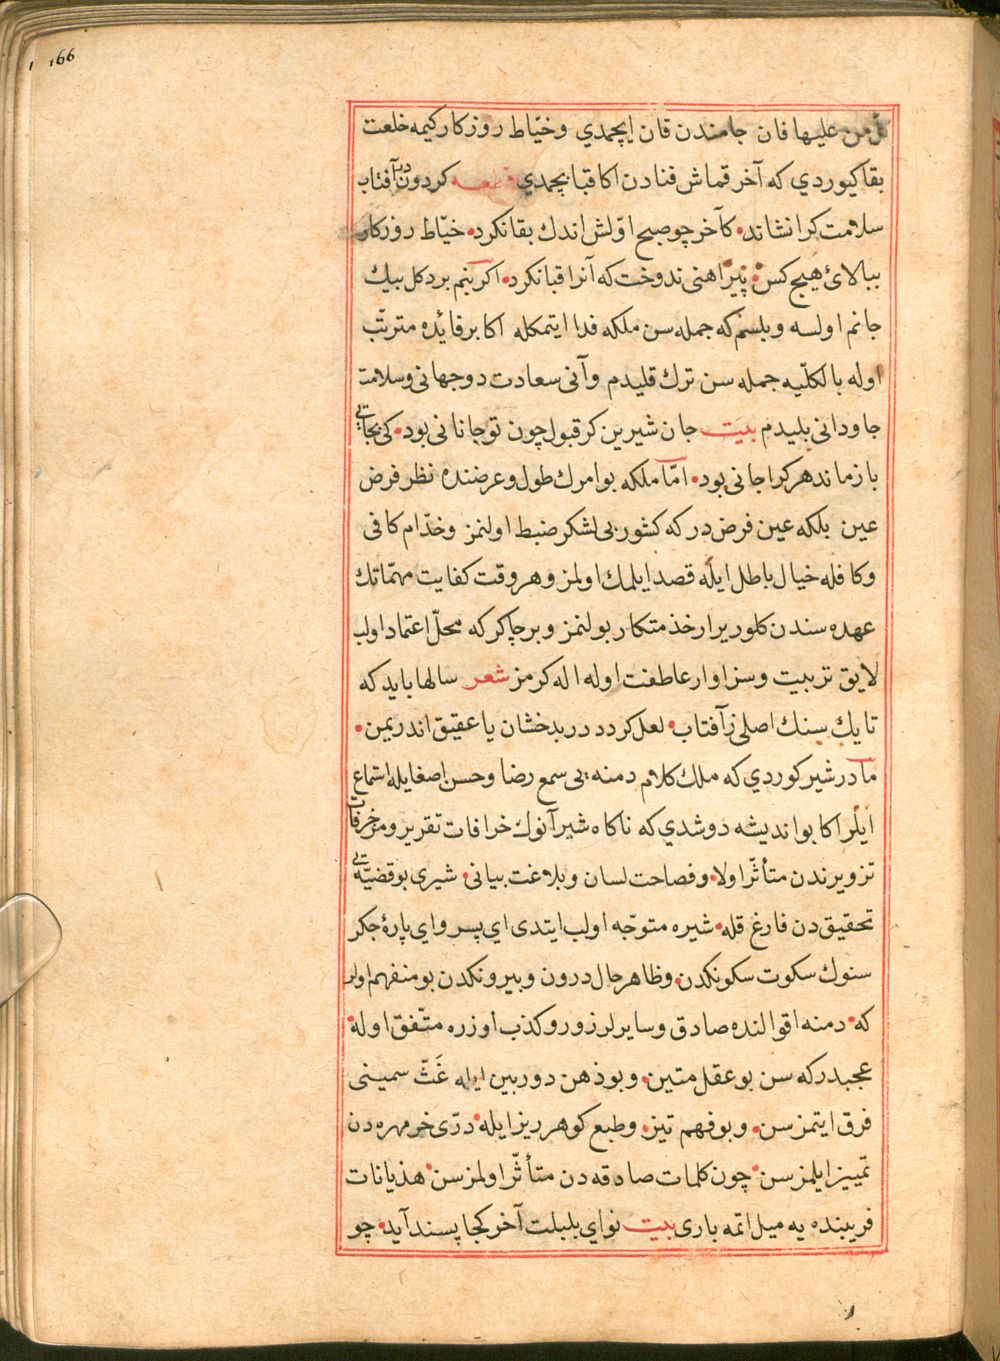 166
من عليها فان جامندن قان ايچمدي وخيّاط روزكار كيمه خلعت
بقا كيوردي كه آخر قماش فنادن اكا قبا بچمدي قطعه كردون در آفتاب
سلامت كرا نشاند • كآخر چو صبح اوّلش اندك بقا نكرد • خيّاط روزكار
ببالائ هيچ كس • پيراهنی ندوخت كه آنرا قبا نكرد • اكر بنم بر دكل بيك
جانم اولسه وبلسم كه جمله سن ملكه فدا ايتمكله اكا بر فائده مترتّب
اوله بالكلّيه جمله سن ترك قليدم وآنی سعادت دوجهانی وسلامت
جاودانی بليدم بيت جان شيرين كر قبول چون تو جانانی بود • كی بجايی
باز ماند هر كرا جانی بود • امّا ملكه بو امرك طول وعرضنده نظر فرض
عين بلكه عين فرض در كه كشور بی لشكر ضبط اولنمز وخدّام كافی
وكافله خيال باطل ايله قصد ايلمك اولمز وهر وقت كفايت مهمّاتك
عهده سندن كلور يرار خذمتكار بولنمز وبر چاكر كه محلّ اعتماد اولب
لايق تربيت وسزاوار عاطفت اوله اله كرمز شعر سالها بايد كه
تا يك سنك اصلی ز آفتاب • لعل كردد در بدخشان يا عقيق اندر يمن •
مادر شير كوردي كه ملك كلام دمنه يی سمع رضا وحسن اصغا يله استماع
ايلر اكا بو انديشه دوشدي كه ناكاه شير آنوك خرافات تقرير ومزخرفات
تزويرندن متأثّر اولا • وفصاحت لسان وبلاغت بيانی • شيری بو قضيّه يی
تحقيق دن فارغ قله • شيره متوجّه اولب ايتدی اي پسر واي پارهٔ جكر
سنوك سكوت سكونكدن • وظاهر حال درون وبيرونكدن بو منفهم اولر
كه • دمنه اقوالنده صادق وسايرلر زور وكذب اوزره متّفق اوله •
عجبدر كه سن بو عقل متين • وبو ذهن دوربين ايله غَثّ سمينی
فرق ايتمز سن • وبو فهم تيز • وطبع كوهر ريز ايله • درّی خر مهره دن
تمييز ايلمز سن • چون كلمات صادقه دن متأثّر اولمز سن • هذيانات
فريبنده يه ميل اتمه باری بيت نواي بلبلت آخر كجا پسند آيد • چو